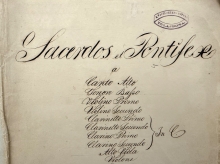 Sacerdos et Pontifex
a
Canto Alto
Tenore Basso
Violino Primo
Violino Secundo
Clarinetto Primo
Clarinetto Secundo
Clarino Primo
Clarino Secundo
in C
Alto Viola
Violone